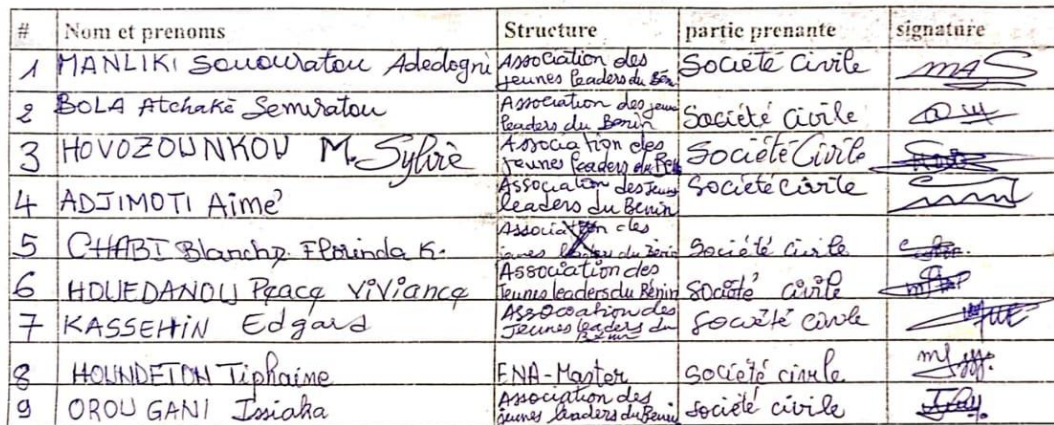 # Nom et prenoms Structure partie prenante signature
1 MANLIKI Sonowratou Adedogni Association des jeunes leaders du Bén Société Civile
2 BOLA Atchakè Semiratou Association des jeune leaders du Benin Société civile
3 HOVOZOUNKOU M. Sylvie Association des jeunes leaders du Béni Société Civile
4 ADJIMOTI Aimé Association des Jeunes leaders du Benin Société civile
5 CHABI Blanche Florinda K. Association des jeunes leaders du Bénin Société civile
6 HOUEDANOU Peace Viviance Association des Jeunes leaders du Bénin Société civile
7 KASSEHIN Edgard Association des Jeunes leaders du Bénin Société civile
8 HOUNDETON Tiphaine ENA-Master société civile
9 OROU GANI Issiaka Association des jeunes leaders du Benin société civile